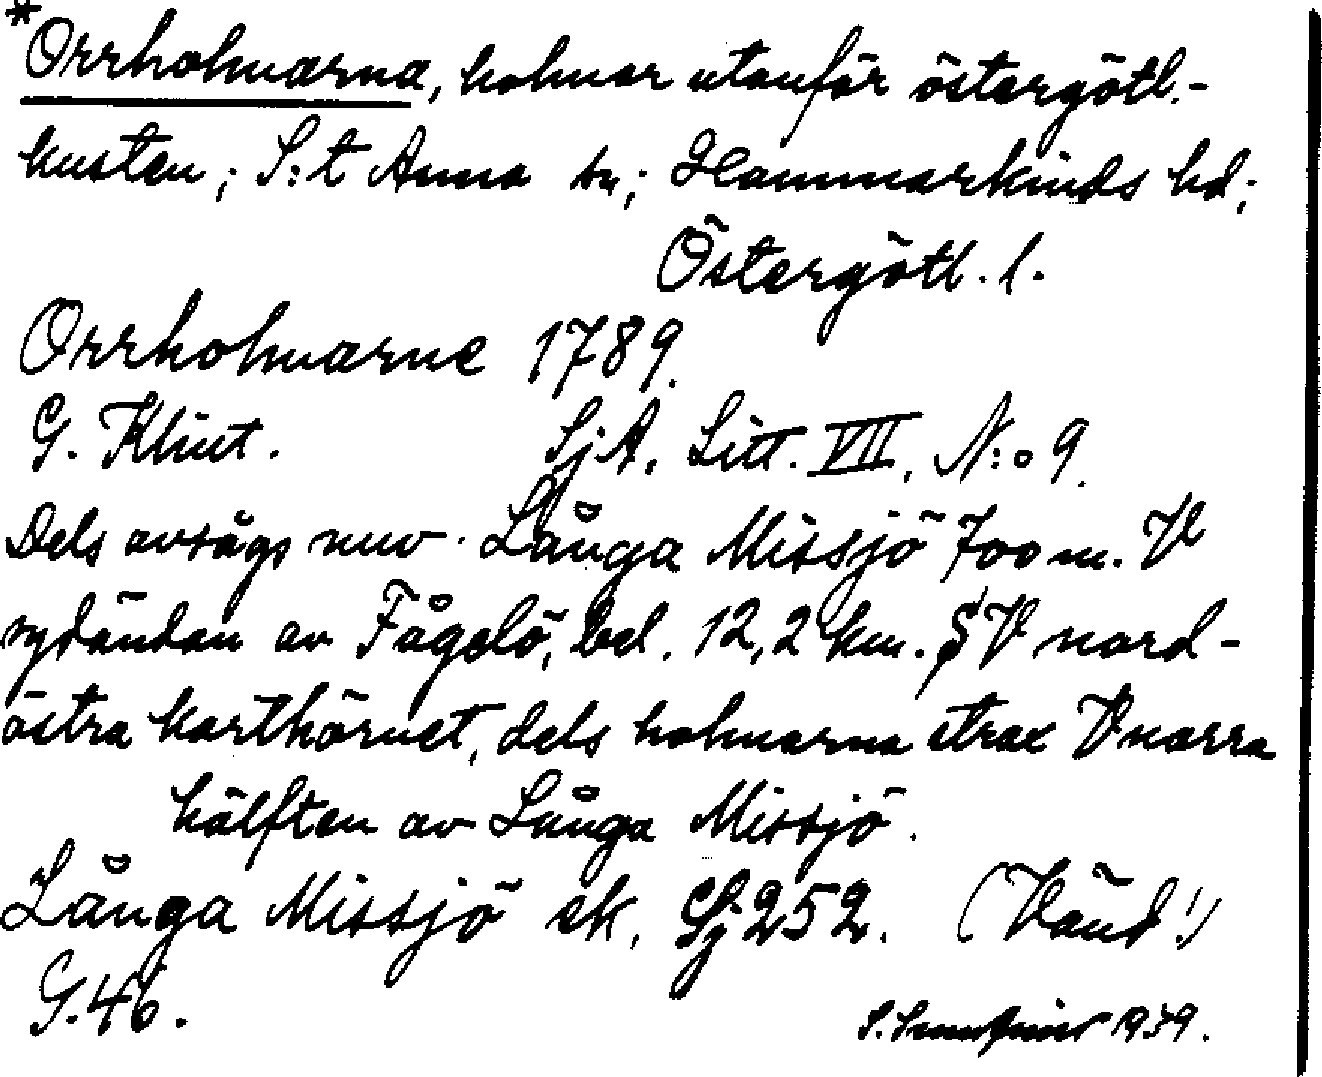 *Orrholmarna, holmar utanför östergötl.-
kusten; S:t Anna sn; Hammarkinds hd;
Östergötl. l.
Orrholmarne 1789.
G. Klint. SjA, Litt. VII, N:o 9.
Dels avsågs nuv. Långa Missjö 700 m. V
sydändan av Fågelö, bel. 12,2 km. SV nord-
östra karthörnet, dels holmarna strax V norra
hälften av Långa Missjö.
Långa Missjö ek. Sj 252. (Vänd!)
G.46.
S. 1939.